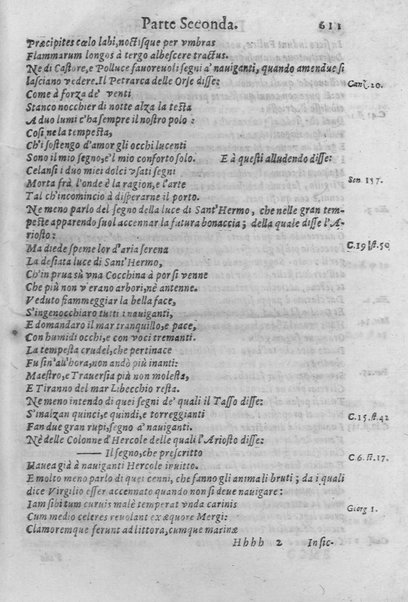 Parte Seconda. 611
Præcipites cœlo labi, noctisque per vmbras
Flammarum longos à tergo albescere tractus.
Ne di Castore, e Polluce fauoreuoli segni a' nauiganti, quando amendue si
lasciano vedere. Il Petrarca delle Orse disse: Canz. 10.
Come à forza de' venti
Stanco nocchier di notte alza la testa
A duo lumi c'ha sempre il nostro polo:
Così ne la tempesta,
Ch'i sostengo d'amor gli occhi lucenti
Sono il mio segno, e'l mio conforto solo. E à questi alludendo disse:
Celansi i duo miei dolci vsati segni
Morta frà l'onde è la ragion, e l'arte Son 157.
Tal ch'incomincio à disperarne il porto.
Ne meno parlo del segno della luce di Sant'Hermo, che nelle gran tem-
peste apparendo suol accennar la fatura bonaccia; della quale disse l'A-
riosto: C.19 st.50
Ma diede speme lor d'aria serena
La desiata luce di Sant'Hermo,
Ch'in prua sù vna Cocchina à por si venne
Che più non v'erano arbori, nè antenne.
Veduto fiammeggiar la bella face,
S'ingenocchiaro tutti i nauiganti,
E domandaro il mar tranquillo, e pace,
Con humidi occhi, e con voci tremanti.
La tempesta crudel, che pertinace
Fu sin'all'hora, non andò più inanti:
Maestro, e Trauersia più non molesta,
E Tiranno del mar Libecchio resta.
Ne meno intendo di quei segni de' quali il Tasso disse:
S'inalzan quinci, e quindi, e torreggianti C. 15. st. 42
Fan due gran rupi, segno a' nauiganti.
Nè delle Colonne d'Hercole delle quali l'Ariosto disse:
—— Il segno, che prescritto C. 6. st. 17.
Hauea già à nauiganti Hercole inuitto.
E molto meno parlo di quei cenni, che fanno gli animali bruti; da i quali
dice Virgilio esser accennato quando non si deue nauigare:
Iam sibi tum curuis malè temperat vnda carinis Georg 1.
Cum medio celeres reuolant ex æquore Mergi:
Clamoremque ferunt ad littora, cumque marinæ
Hhhh 2 In sic-